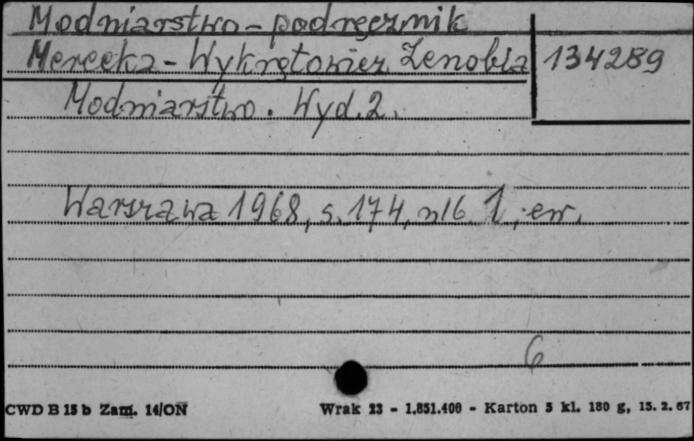 Modniarstwo - podręcznik
Merecka - Wykrętowicz Zenobia 134289
Modniarstwo. Wyd. 2.
Warszawa 1968, s. 174, nlb 1, err.
6
CWD B 15 b Zam. 14/ON Wrak 23 - 1.851.400 - Karton 5 kl. 180 g, 15. 2. 67